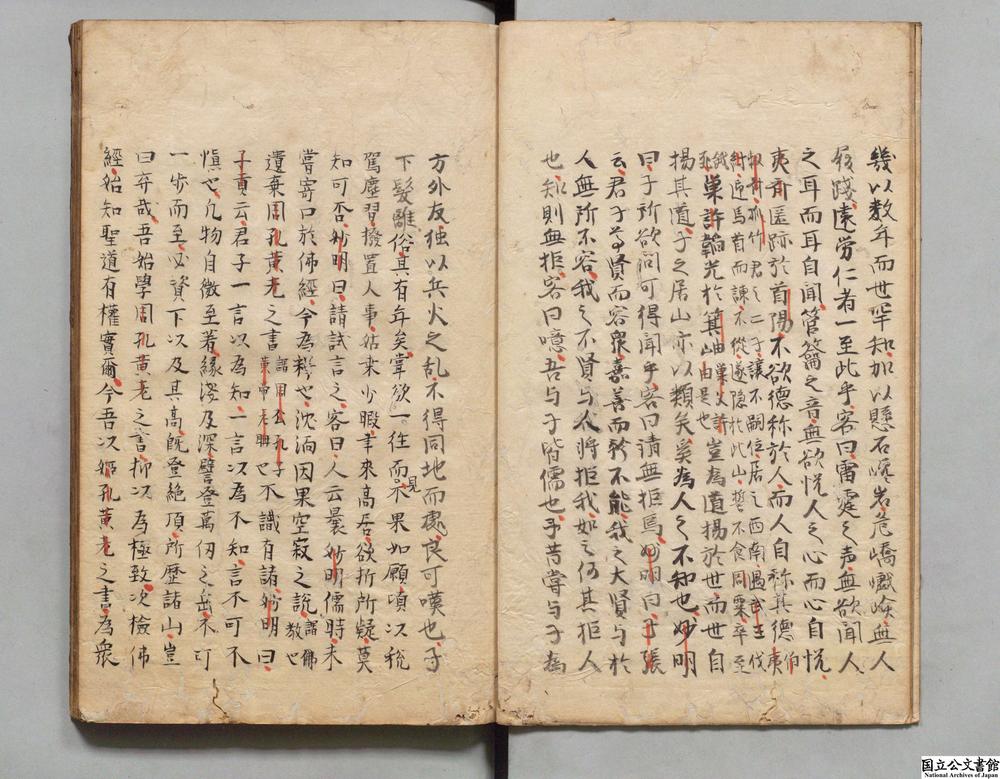 幾以数年而世罕知加以懸石巉岩危嶠巇嶮無人
屐踐遠労仁者一至此乎客曰雷霆之声無欲聞人
之耳而耳自聞管籥之音無欲悦人之心而心自悦
夷斉匿跡於首陽不欲徳称於人而人自称其徳伯夷
叔斉孤竹君之二子讓不嗣位居之西南遇武王伐
紂返馬首而諌不從遂隠於此山誓不食周粟卒至
餓死巣許韜光於箕岫巣父許由是也豈為道揚於世而世自
揚其道子之居山亦以類矣奚為人之不知也妙明
曰子所欲問可得聞乎客曰請無拒焉妙明曰子張
云君子尊賢而容衆嘉善而矜不能我之大賢与於
人無所不容我之不賢与人将拒我如之何其拒人
也知則無拒客曰噫吾与子皆儒也予昔嘗与子為
方外友独以兵火之乱不得同地而處良可嘆也子
下髮離俗其有年矣嘗欲一往而見不果如願頃以税
駕塵習撥置人事姑求少暇聿來高居欲析所疑莫
知可否妙明曰請試言之客曰人云曩妙明儒時未
嘗寄口於佛経今為釋也沈湎因果空寂之説謂佛教也
遺棄周孔黄老之書謂周公孔子黄帝老聃也不識有諸妙明曰
子貢云君子一言以為知一言以為不知言不可不
慎也凡物自微至著縁淺及深譬登萬仭之岳不可
一歩而至必資下以及其高既登絶頂所歴諸山豈
曰弃哉吾始學周孔黄老之言抑以為極致次檢佛
經始知聖道有權實爾今吾以姬孔黄老之書為衆
国立公文書館
National Archives of Japan